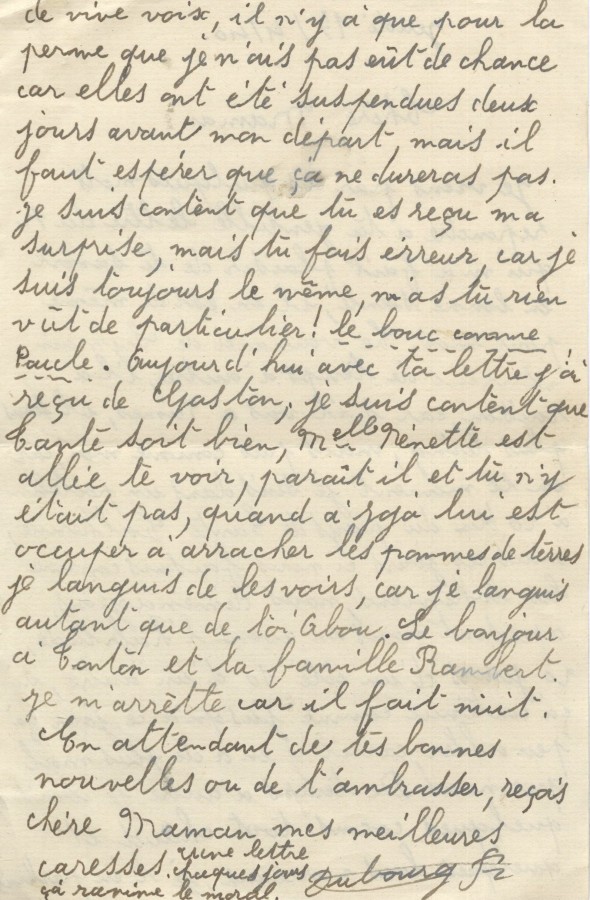 de vive voix, il n'y à que pour la
perme que je n'ais pas eût de chance
car elles ont été suspendues deux
jours avant mon départ, mais il
faut espérer que çà ne dureras pas.
je suis content que tu es reçu ma
surprise, mais tu fais erreur, car je
suis toujours le même, n'as tu rien
vût de particulier! le bouc
Aujourd'hui avec ta lettre j'ai
reçu de Gaston, je suis content que
Tante soit bien, Melle Nénette est
allée te voir, parait il et tu n'y
était pas, quand à jojo lui est
occuper à arracher les pommes de terres
je languis de les voirs, car je languis
autant que de toi Abou. Le bonjour
à Tonton et la famille Rambert.
je m'arrêtte car il fait nuit.
En attendant de tes bonnes
nouvelles ou de t'ambrasser, reçois
chère Maman mes meilleures
caresses. une lettre
chaques jours Dubourg
çà ranime le moral.